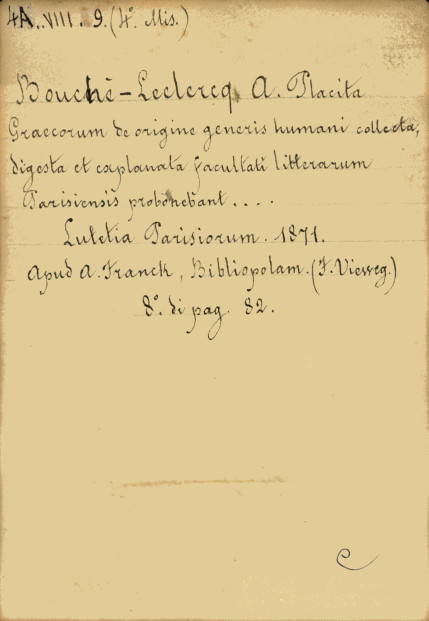 4A..VIII. 9.(4º. Mis.)
Bouché-Leclercq A. Placita
Graecorum de origine generis humani collecta,
digesta et explanata facultati litterarum
Parisiensis proponebant....
Lutetia Parisiorum. 1871.
Apud A. Franck, Bibliopolam. (F. Vieweg.)
8º. di pag. 82.
C